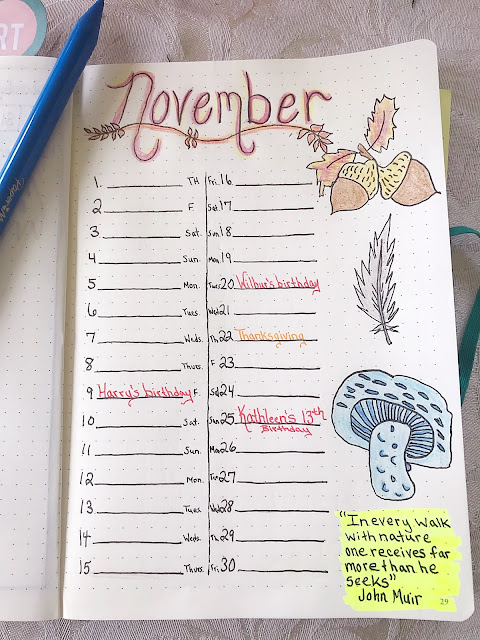 RT
November
1. TH
2 F.
3 Sat.
4 Sun.
5 Mon.
6 Tues.
7 Weds.
8 Thurs.
9 Harry's birthday F.
10 Sat.
11 Sun.
12 Mon.
13 Tues.
14 Weds.
15 Thurs.
Fri. 16
Sat. 17
Sun 18
Mon. 19
Tues 20 Wilbur's birthday
Wed 21
Th. 22 Thanksgiving
F 23
Sat 24
Sun 25 Kathleen's 13th
Birthday
Mon 26
27
Wed 28
Th. 29
Fri. 30
"In every walk
with nature
one receives far
more than he
seeks"
John Muir
29